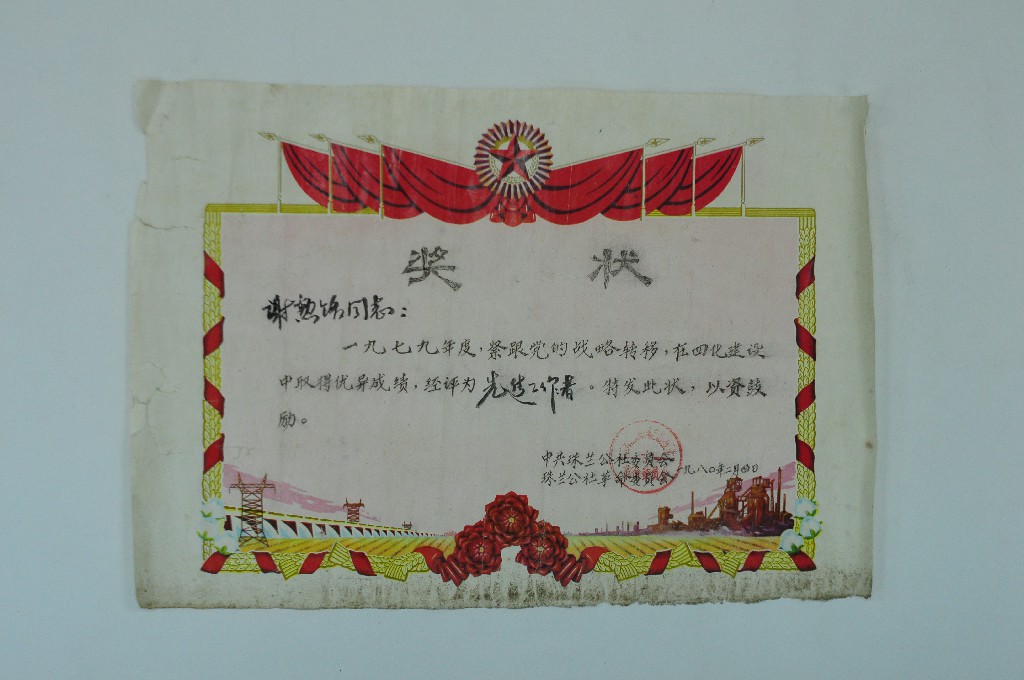 奖状
谢勲铭同志：
一九七九年度，紧跟党的战略转移，在四化建设
中取得优异成绩，经评为先进工作者。特发此状，以资鼓
励。
中共珠兰公社委员会
珠兰公社革命委员会 一九八〇年二月四日